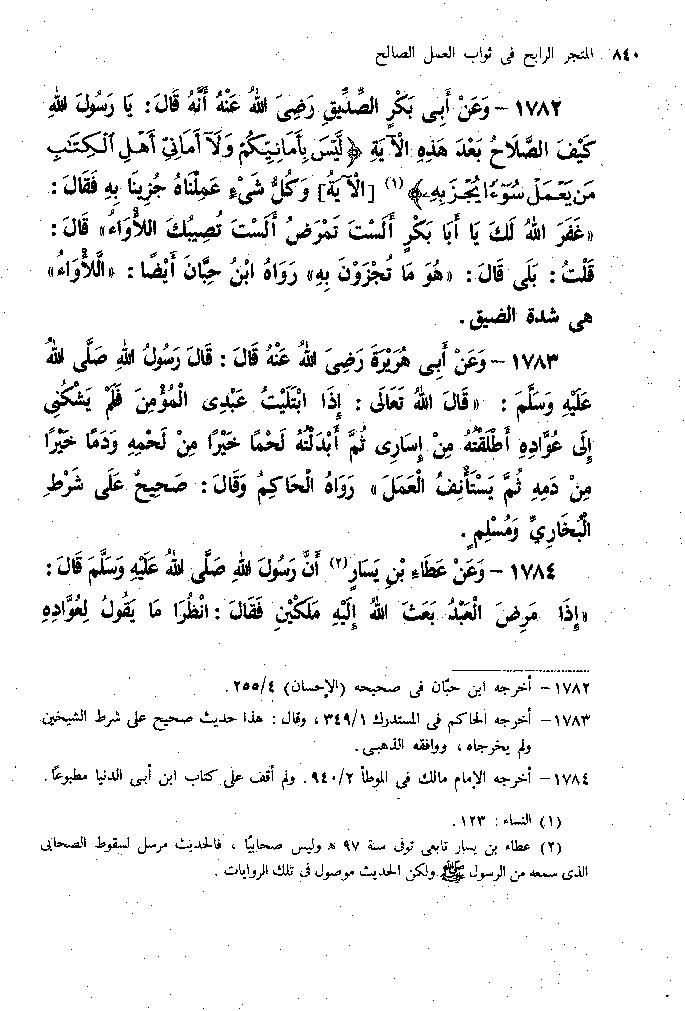 ٨٤٠ المتجر الرابح فى ثواب العمل الصالح
١٧٨٢ – وَعَنْ أَبِى بَكْرٍ الصِّدِّيقِ رَضِىَ اللهُ عَنْهُ أَنَّهُ قَالَ : يَا رَسُولَ اللهِ
كَيْفَ الصَّلَاحُ بَعْدَ هَذِهِ الْآيَةِ ﴿ لَّيْسَ بِأَمَانِيِّكُمْ وَلَآ أَمَانِىِّ أَهْلِ ٱلْكِتَٰبِ
مَن يَعْمَلْ سُوٓءًا يُجْزَ بِهِۦ ﴾ (١) [الْآيَةُ] وَكُلُّ شَىْءٍ عَمِلْنَاهُ جُزِينَا بِهِ فَقَالَ :
«غَفَرَ اللهُ لَكَ يَا أَبَا بَكْرٍ أَلَسْتَ تَمْرَضُ أَلَسْتَ تُصِيبُكَ اللأْوَاءُ» قَالَ :
قُلْتُ : بَلَى قَالَ : «هُوَ مَا تُجْزَوْنَ بِهِ» رَوَاهُ ابْنُ حِبَّانَ أَيْضًا : «الَّلأْوَاءُ»
هى شدة الضيق .
١٧٨٣ – وَعَنْ أَبِى هُرَيْرَةَ رَضِىَ اللهُ عَنْهُ قَالَ : قَالَ رَسُولُ اللهِ صَلَّى اللهُ
عَلَيْهِ وَسَلَّمَ : «قَالَ اللهُ تَعَالَى : إِذَا ابْتَلَيْتُ عَبْدِى الْمُؤْمِنَ فَلَمْ يَشْكُنِى
إِلَى عُوَّادِهِ أَطْلَقْتُهُ مِنْ إِسَارِى ثُمَّ أَبْدَلْتُهُ لَحْمًا خَيْرًا مِنْ لَحْمِهِ وَدَمًا خَيْرًا
مِنْ دَمِهِ ثُمَّ يَسْتَأْنِفُ الْعَمَلَ» رَوَاهُ الْحَاكِمُ وَقَالَ : صَحِيحٌ عَلَى شَرْطِ
الْبُخَارِىِّ وَمُسْلِمٍ .
١٧٨٤ – وَعَنْ عَطَاءِ بْنِ يَسَارٍ (٢) أَنَّ رَسُولَ اللهِ صَلَّى اللهُ عَلَيْهِ وَسَلَّمَ قَالَ :
«إِذَا مَرِضَ الْعَبْدُ بَعَثَ اللهُ إِلَيْهِ مَلَكَيْنِ فَقَالَ : انْظُرَا مَا يَقُولُ لِعُوَّادِهِ
١٧٨٢ – أخرجه ابن حبّان فى صحيحه (الإحسان) ٢٥٥/٤ .
١٧٨٣ – أخرجه الحاكم فى المستدرك ٣٤٩/١ ، وقال : هذا حديث صحيح على شرط الشيخين
ولم يخرجاه ، ووافقه الذهبى .
١٧٨٤ – أخرجه الإمام مالك فى الموطأ ٩٤٠/٢ . ولم أقف على كتاب ابن أبى الدنيا مطبوعًا .
(١) النساء : ١٢٣ .
(٢) عطاء بن يسار تابعى توفى سنة ٩٧ ه‍ وليس صحابيًا ، فالحديث مرسل لسقوط الصحابى
الذى سمعه من الرسول ﷺ ولكن الحديث موصول فى تلك الروايات .